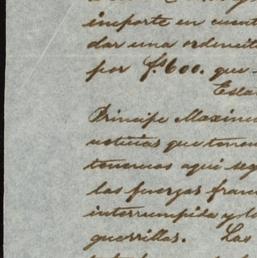 importe en cuent
dar una ordencita
por fs. 600. que
Esta
Principe Maximi
noticias que tenem
tenemos aqui seg
las fuerzas franc
interrumpida y l
guerrillas. Las